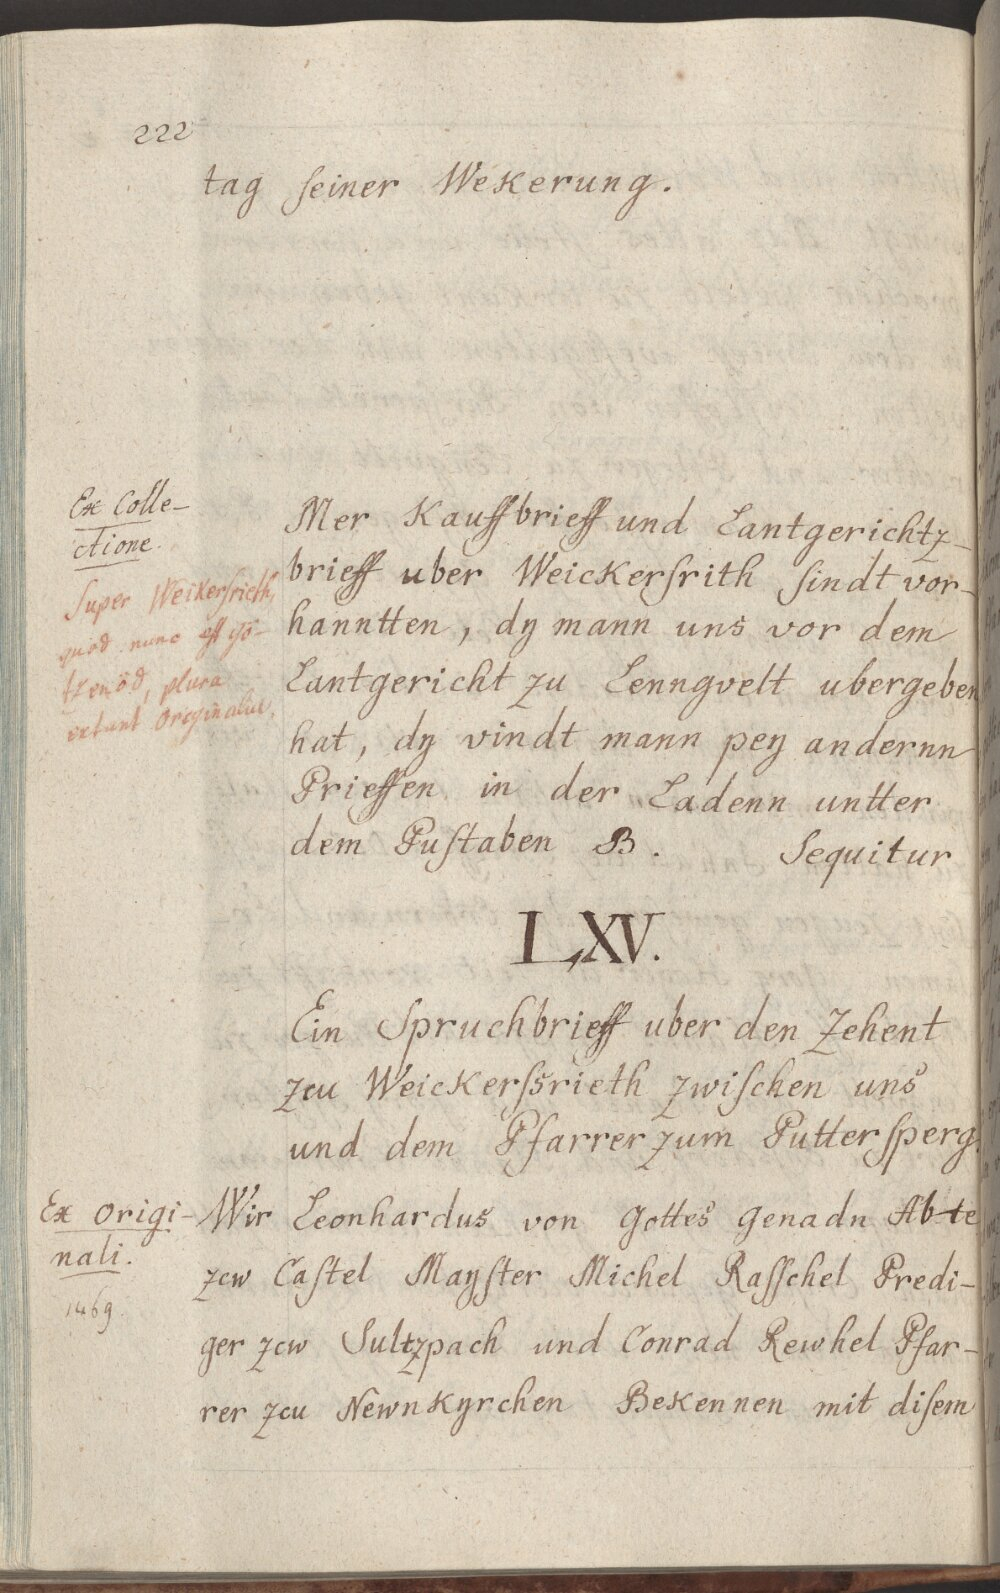 222
tag ſeiner Wekerung.
Ex Colle-
ctione.
Super Weikersrieth,
quod nunc est Gö-
tzenöd, plura
extant Originalia.
Mer Kauffbrieff und Lantgerichtz-
brieff uber Weickersrith ſindt vor-
hanntten, dy mann uns vor dem
Lantgericht zu Lenngvelt ubergeben
hat, dy vindt mann pey andernn
Prieffen in der Ladenn untter
dem Puſtaben B. Sequitur
LXV.
Ein Spruchbrieff uber den Zehent
zcu Weickerſsrieth zwiſchen uns
und dem Pfarrer zum Putterſperg.
Ex Origi-
nali.
1469.
Wir Leonhardus von Gottes Genadn Abte
zcw Caſtel Mayſter Michel Raſſchel Predi-
ger zcw Sultzpach und Conrad Rewhel Pfar-
rer zcu Newnkyrchen Bekennen mit diſem